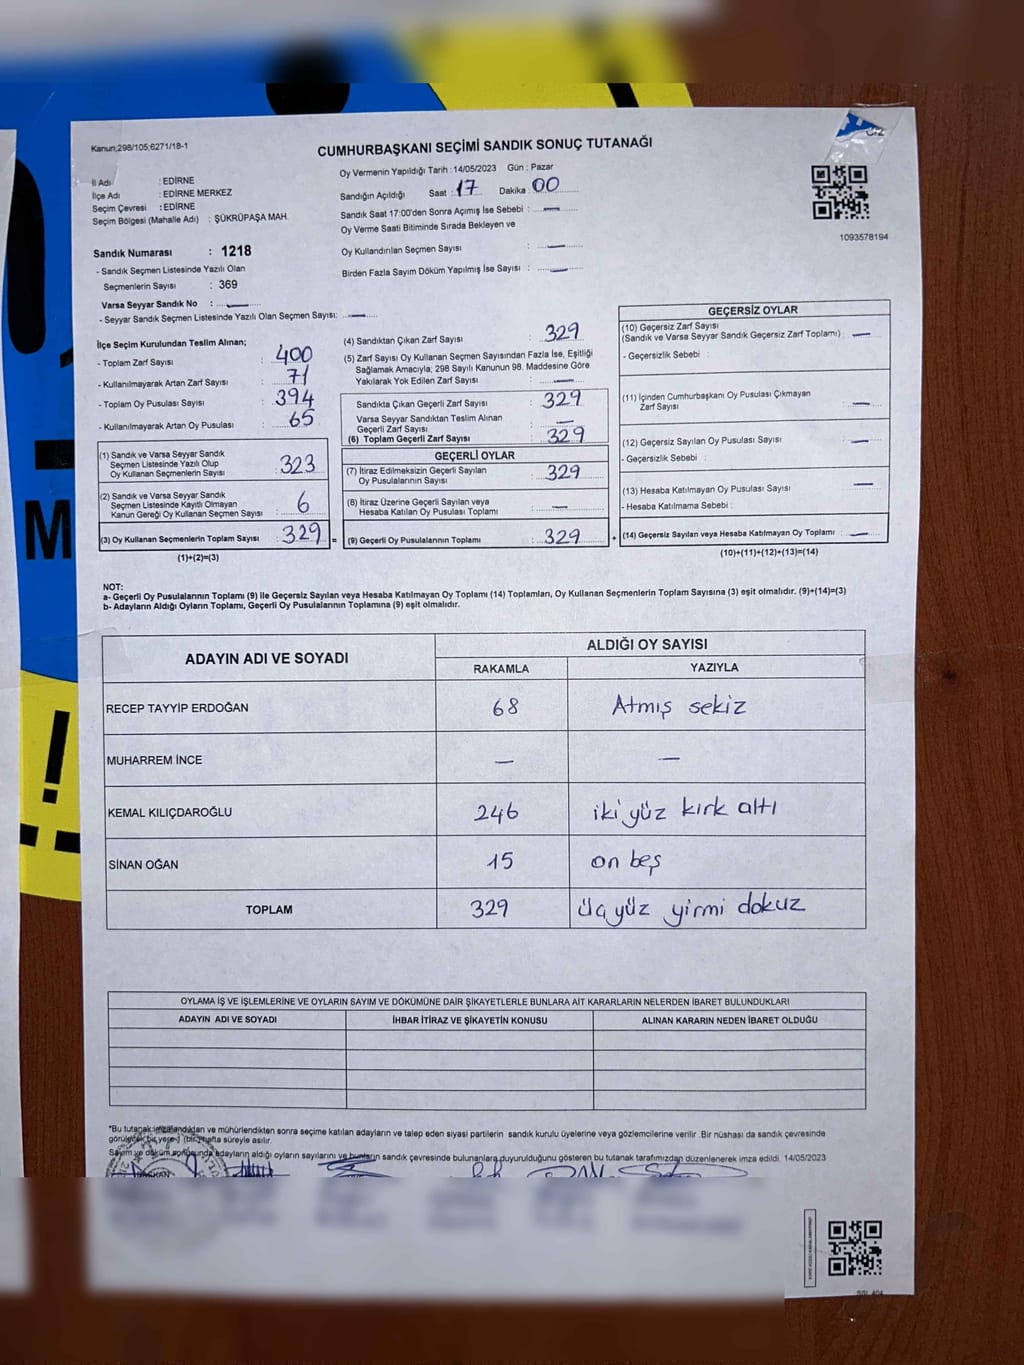 Kanun;298/105;6271/18-1
CUMHURBAŞKANI SEÇİMİ SANDIK SONUÇ TUTANAĞI
İl Adı : EDİRNE
İlçe Adı : EDİRNE MERKEZ
Seçim Çevresi : EDİRNE
Seçim Bölgesi (Mahalle Adı) : ŞÜKRÜPAŞA MAH.
Oy Vermenin Yapıldığı Tarih : 14/05/2023 Gün : Pazar
Sandığın Açıldığı Saat : 17 Dakika : 00
Sandık Saat 17:00'den Sonra Açımış İse Sebebi : —
Oy Verme Saati Bitiminde Sırada Bekleyen ve
Oy Kullandırılan Seçmen Sayısı : —
Birden Fazla Sayım Döküm Yapılmış İse Sayısı : —
1093578194
Sandık Numarası : 1218
- Sandık Seçmen Listesinde Yazılı Olan
Seçmenlerin Sayısı : 369
Varsa Seyyar Sandık No : —
- Seyyar Sandık Seçmen Listesinde Yazılı Olan Seçmen Sayısı: —
İlçe Seçim Kurulundan Teslim Alınan;
- Toplam Zarf Sayısı : 400
- Kullanılmayarak Artan Zarf Sayısı : 71
- Toplam Oy Pusulası Sayısı : 394
- Kullanılmayarak Artan Oy Pusulası : 65
(1) Sandık ve Varsa Seyyar Sandık
Seçmen Listesinde Yazılı Olup
Oy Kullanan Seçmenlerin Sayısı : 323
(2) Sandık ve Varsa Seyyar Sandık
Seçmen Listesinde Kayıtlı Olmayan
Kanun Gereği Oy Kullanan Seçmen Sayısı : 6
(3) Oy Kullanan Seçmenlerin Toplam Sayısı : 329 =
(1)+(2)=(3)
(4) Sandıktan Çıkan Zarf Sayısı : 329
(5) Zarf Sayısı Oy Kullanan Seçmen Sayısından Fazla İse, Eşitliği
Sağlamak Amacıyla; 298 Sayılı Kanunun 98. Maddesine Göre
Yakılarak Yok Edilen Zarf Sayısı : —
Sandıkta Çıkan Geçerli Zarf Sayısı : 329
Varsa Seyyar Sandıktan Teslim Alınan
Geçerli Zarf Sayısı : —
(6) Toplam Geçerli Zarf Sayısı : 329
GEÇERLİ OYLAR
(7) İtiraz Edilmeksizin Geçerli Sayılan
Oy Pusulalarının Sayısı : 329
(8) İtiraz Üzerine Geçerli Sayılan veya
Hesaba Katılan Oy Pusulası Toplamı : —
(9) Geçerli Oy Pusulalarının Toplamı : 329 +
GEÇERSİZ OYLAR
(10) Geçersiz Zarf Sayısı
(Sandık ve Varsa Seyyar Sandık Geçersiz Zarf Toplamı) : —
- Geçersizlik Sebebi :
(11) İçinden Cumhurbaşkanı Oy Pusulası Çıkmayan
Zarf Sayısı : —
(12) Geçersiz Sayılan Oy Pusulası Sayısı : —
- Geçersizlik Sebebi :
(13) Hesaba Katılmayan Oy Pusulası Sayısı : —
- Hesaba Katılmama Sebebi :
(14) Geçersiz Sayılan veya Hesaba Katılmayan Oy Toplamı : —
(10)+(11)+(12)+(13)=(14)
NOT:
a- Geçerli Oy Pusulalarının Toplamı (9) ile Geçersiz Sayılan veya Hesaba Katılmayan Oy Toplamı (14) Toplamları, Oy Kullanan Seçmenlerin Toplam Sayısına (3) eşit olmalıdır. (9)+(14)=(3)
b- Adayların Aldığı Oyların Toplamı, Geçerli Oy Pusulalarının Toplamına (9) eşit olmalıdır.
ADAYIN ADI VE SOYADI
ALDIĞI OY SAYISI
RAKAMLA YAZIYLA
RECEP TAYYİP ERDOĞAN 68 Atmış sekiz
MUHARREM İNCE — —
KEMAL KILIÇDAROĞLU 246 iki yüz kırk altı
SİNAN OĞAN 15 on beş
TOPLAM 329 üç yüz yirmi dokuz
OYLAMA İŞ VE İŞLEMLERİNE VE OYLARIN SAYIM VE DÖKÜMÜNE DAİR ŞİKAYETLERLE BUNLARA AİT KARARLARIN NELERDEN İBARET BULUNDUKLARI
ADAYIN ADI VE SOYADI İHBAR İTİRAZ VE ŞİKAYETİN KONUSU ALINAN KARARIN NEDEN İBARET OLDUĞU
*Bu tutanak imzalandıktan ve mühürlendikten sonra seçime katılan adayların ve talep eden siyasi partilerin sandık kurulu üyelerine veya gözlemcilerine verilir. Bir nüshası da sandık çevresinde
görülecek bir yere (bir) hafta süreyle asılır.
Sayım ve döküm sonucunda adayların aldığı oyların sayılarını ve bunların sandık çevresinde bulunanlara duyurulduğunu gösteren bu tutanak tarafımızdan düzenlenerek imza edildi. 14/05/2023
M
!